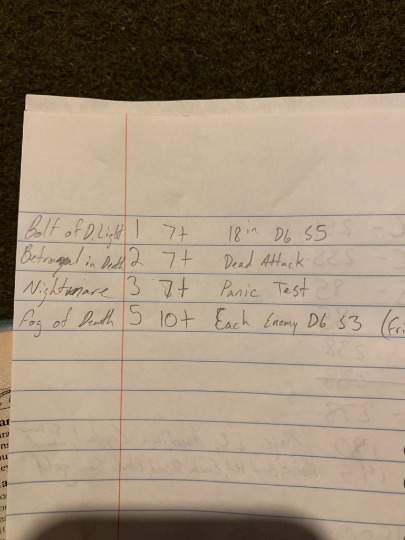 Bolt of D. Light 1 7+ 18in D6 S5
Betrayal in Death 2 7+ Dead Attack
Nightmare 3 7+ Panic Test
Fog of Death 5 10+ Each Enemy D6 S3